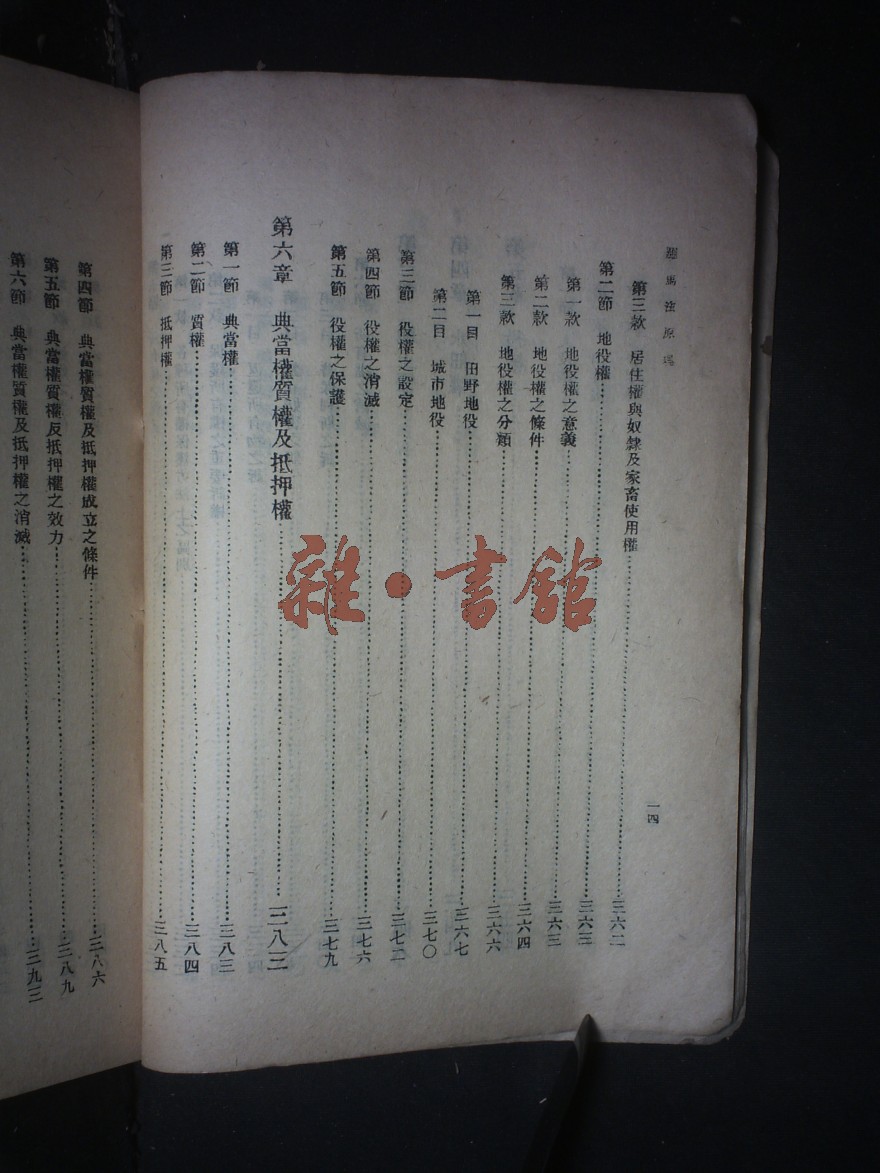 羅馬法原理
一四
第三款 居住權與奴隸及家畜使用權……三六二
第二節 地役權……三六三
第一款 地役權之意義……三六三
第二款 地役權之條件……三六四
第三款 地役權之分類……三六六
第一目 田野地役……三六七
第二目 城市地役……三七〇
第三節 役權之設定……三七二
第四節 役權之消滅……三七六
第五節 役權之保護……三七九
第六章 典當權質權及抵押權……三八三
第一節 典當權……三八三
第二節 質權……三八四
第三節 抵押權……三八五
第四節 典當權質權及抵押權成立之條件……三八六
第五節 典當權質權反抵押權之效力……三八九
第六節 典當權質權及抵押權之消滅……三九三
雜·書館